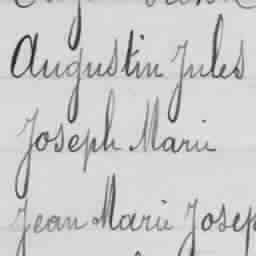 Augustin Jules
Joseph Marie
Jean Marie Josep